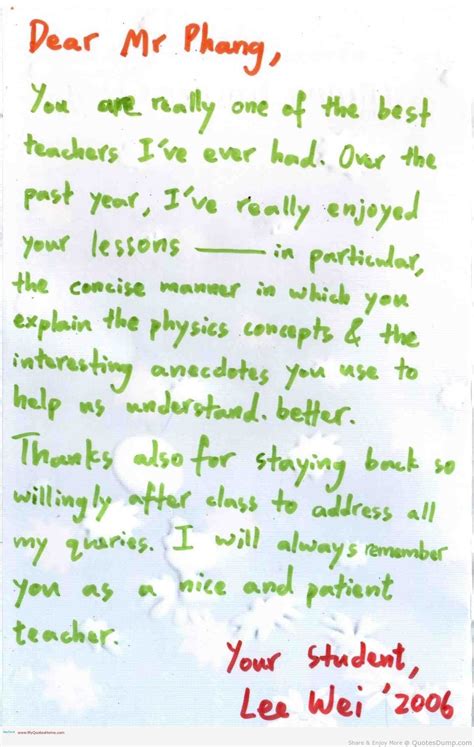 Dear Mr Phang,
You are really one of the best
teachers I've ever had. Over the
past year, I've really enjoyed
your lessons — in particular,
the concise manner in which you
explain the physics concepts & the
interesting anecdotes you use to
help us understand. better.
Thanks also for staying back so
willingly after class to address all
my queries. I will always remember
you as a nice and patient
teacher.
Your student,
Lee Wei '2006
www.MyQuotesHome.com
Share & Enjoy More @ QuotesDump.com